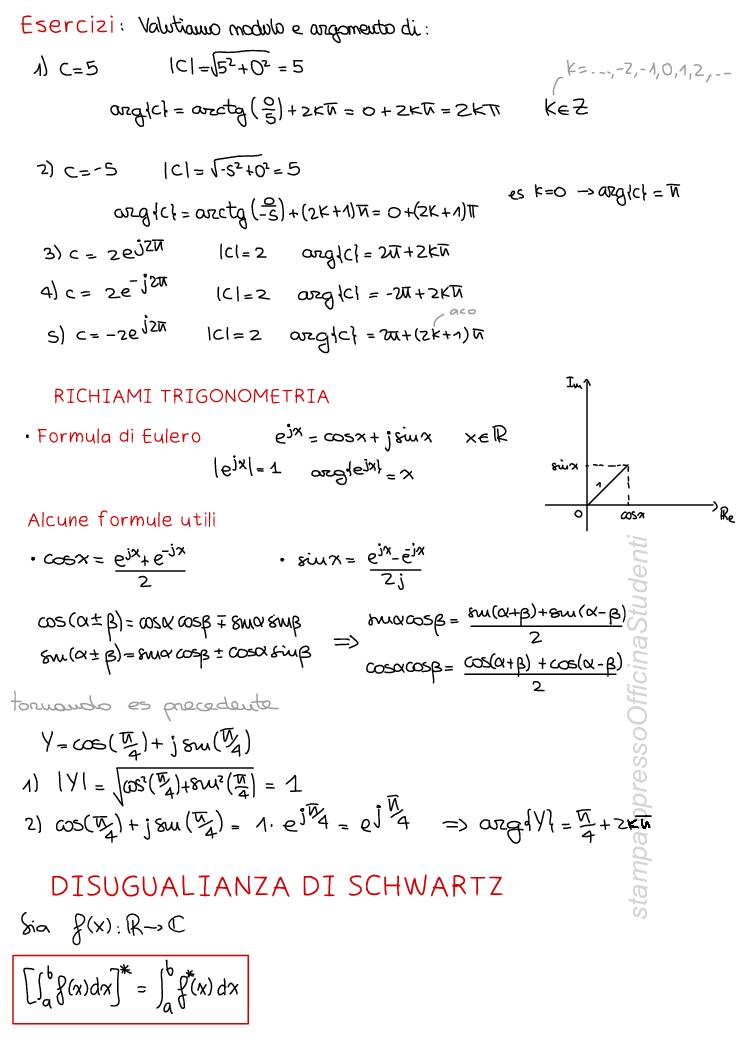 Esercizi: Valutiamo modulo e argomento di:
1) C=5 |C|=√5²+0² = 5
K=...,-2,-1,0,1,2,...
arg{c} = arctg(0/5)+2kπ = 0+2kπ = 2kπ K∈Z
2) C=-5 |C|=√-5²+0² = 5
es K=0 → arg{c} = π
arg{c} = arctg(0/-5)+(2k+1)π = 0+(2k+1)π
3) c = 2e^j2π |C|=2 arg{c} = 2π+2kπ
4) c = 2e^-j2π |C|=2 arg{c} = -2π+2kπ
5) c = -2e^j2π |C|=2 arg{c} = 2π+(2k+1)π
RICHIAMI TRIGONOMETRIA
Im
· Formula di Eulero e^jx = cosx + j sinx x∈ℝ
|e^jx| = 1 arg{e^jx} = x
sinx
1
0 cosx Re
Alcune formule utili
· cosx = (e^jx + e^-jx)/2 · sinx = (e^jx - e^-jx)/2j
cos(α±β) = cosα cosβ ∓ sinα sinβ ⇒ sinα cosβ = (sin(α+β)+sin(α-β))/2
sin(α±β) = sinα cosβ ± cosα sinβ cosα cosβ = (cos(α+β)+cos(α-β))/2
tornando es precedente
Y = cos(π/4) + j sin(π/4)
1) |Y| = √cos²(π/4)+sin²(π/4) = 1
2) cos(π/4) + j sin(π/4) = 1·e^jπ/4 = e^jπ/4 ⇒ arg{Y} = π/4 + 2kπ
DISUGUALIANZA DI SCHWARTZ
Sia f(x): ℝ→ℂ
[∫_a^b f(x)dx]* = ∫_a^b f*(x) dx
stampappressoOfficinaStudenti